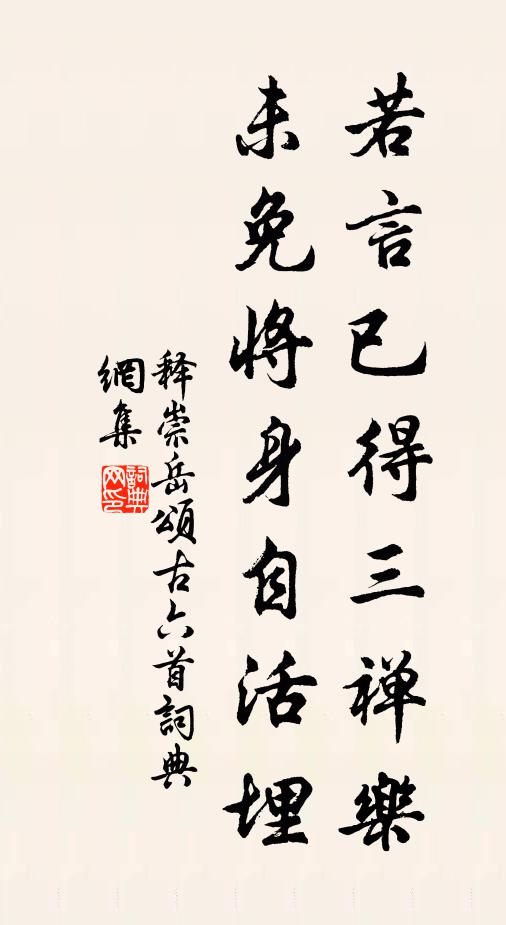 若言已得三禅樂
未免將身自活埋
释崇岳頌古六首詞典
網集
詞典
网印